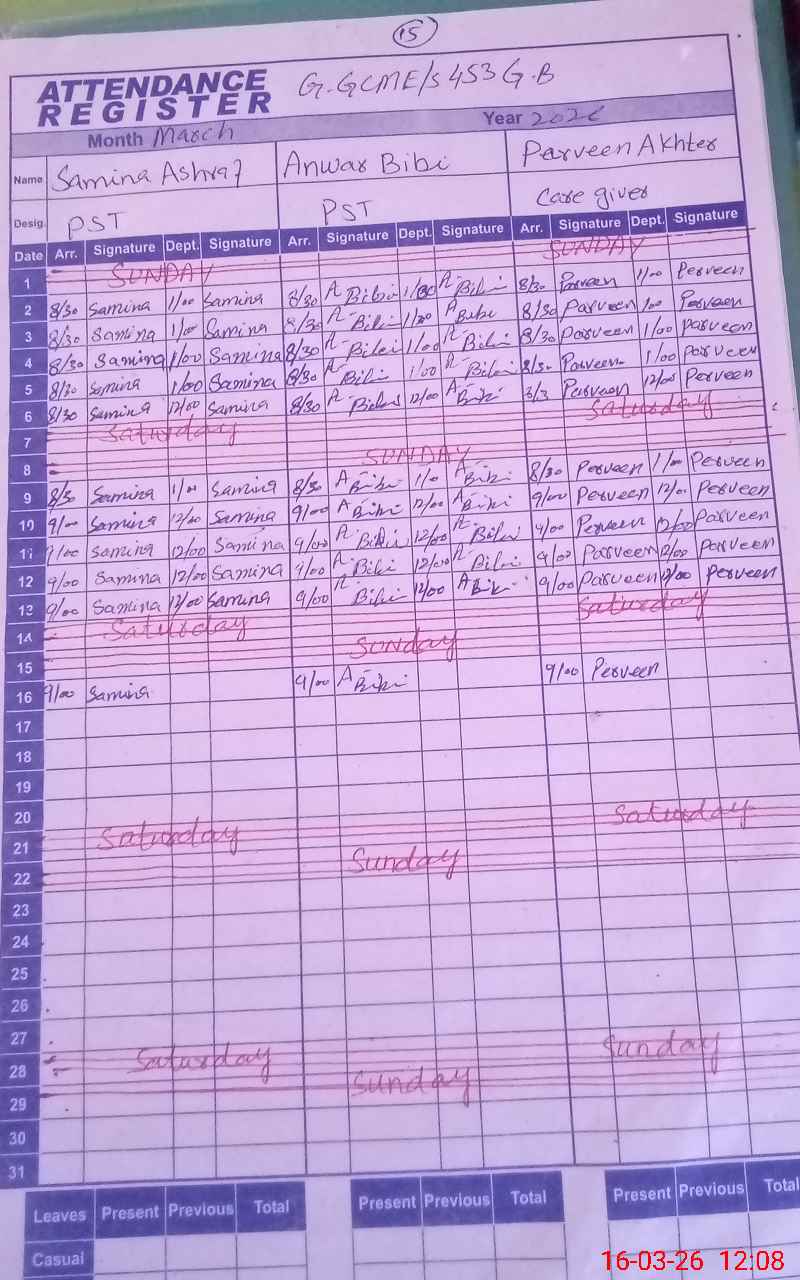 15
ATTENDANCE REGISTER G.GCME/S 453 G.B
Month March Year 2026
Name Samina Ashraf Anwar Bibi Parveen Akhter
Desig. PST PST Care giver
Date Arr. Signature Dept. Signature Arr. Signature Dept. Signature Arr. Signature Dept. Signature
1 SUNDAY SUNDAY
2 8/30 Samina 1/00 Samina 8/30 A-Bibi 1/00 A-Bibi 8/30 Parveen 1/00 Perveen
3 8/30 Samina 1/00 Samina 8/30 A-Bibi 1/00 A Bibi 8/30 Parveen 1/00 Perveen
4 8/30 Samina 1/00 Samina 8/30 A-Bibi 1/00 A-Bibi 8/30 Parveen 1/00 Parveen
5 8/30 Samina 1/00 Samina 8/30 A-Bibi 1/00 A-Bibi 8/30 Parveen 1/00 Parveen
6 8/30 Samina 12/00 Samina 8/30 A-Bibi 12/00 A-Bibi Perveen 12/00 Perveen
7 Saturday Saturday
8 SUNDAY
9 8/30 Samina 1/00 Samina 8/30 A-Bibi 1/0 A-Bibi 8/30 Perveen 1/00 Perveen
10 9/00 Samina 12/00 Samina 9/00 A-Bibi 12/00 A-Bibi 9/00 Perveen 12/00 Perveen
11 9/00 Samina 12/00 Samina 9/00 A-Bibi 12/00 A-Bibi 9/00 Perveen 12/00 Parveen
12 9/00 Samina 12/00 Samina 9/00 A-Bibi 12/00 A-Bibi 9/00 Parveen 12/00 Parveen
13 9/00 Samina 12/00 Samina 9/00 A-Bibi 12/00 A Bibi 9/00 Parveen 12/00 Perveen
14 Saturday Saturday
15 SUNDAY
16 9/00 Samina 9/00 A-Bibi 9/00 Perveen
17
18
19
20
21 Saturday Saturday
22 Sunday
23
24
25
26
27
28 Saturday Sunday
29 Sunday
30
31
Leaves Present Previous Total Present Previous Total Present Previous Total
Casual
16-03-26 12:08